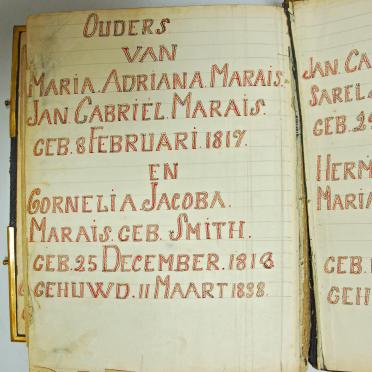 OUDERS
VAN
MARIA. ADRIANA. MARAIS.
JAN. GABRIËL. MARAIS.
GEB. 8 FEBRUARI. 1817.
EN
CORNELIA. JACOBA.
MARAIS. GEB. SMITH.
GEB. 25 DECEMBER. 1818
GEHUWD. 11 MAART 1838.
JAN. GA
SAREL
GEB. 2
HERM
MARIA
GEB.
GEH